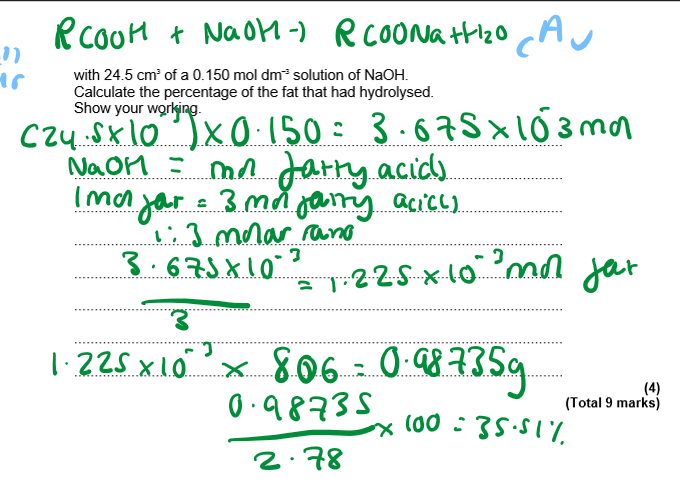 RCOOH + NaOH -) RCOONa + H20 (A
with 24.5 cm³ of a 0.150 mol dm⁻³ solution of NaOH.
Calculate the percentage of the fat that had hydrolysed.
Show your working.
(24.5x10⁻³) x 0.150 = 3.675 x 10⁻3 mol
NaOH = mol fatty acids
1 mol fat = 3 mol fatty acids
1:3 molar ratio
3.675x10⁻³
= 1.225 x 10⁻³ mol fat
3
1.225x10⁻³ x 806 = 0.98735g
(4)
(Total 9 marks)
0.98735
x 100 = 35.51%
2.78